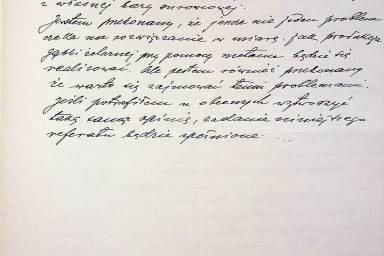 z własnej bazy surowcowej.
Jestem przekonany, że jeszcze nie jeden problem
czeka na rozwiązanie w miarę, jak produkcja
gąbki żelaznej przy pomocy metanu będzie się
realizować. Ale jestem również przekonany
że warto się zajmować temi problemami.
Jeśli potrafiłem u obecnych wzbudzić
taką samą opinię, zadanie niniejszego
referatu będzie spełnione. ...